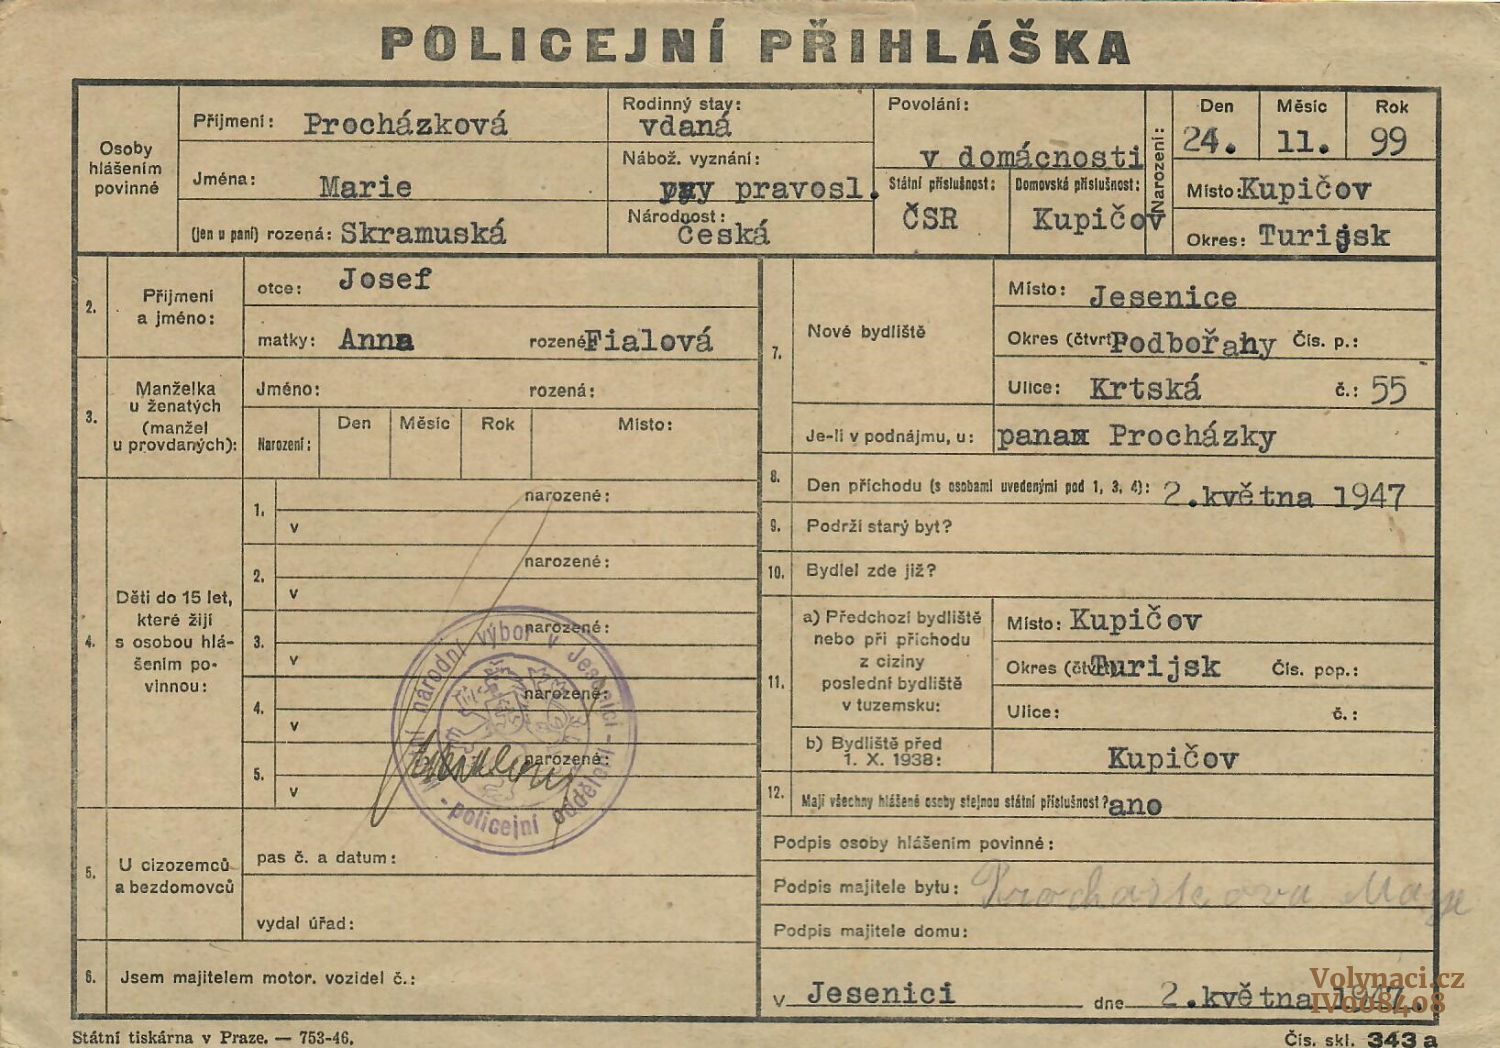 POLICEJNÍ PŘIHLÁŠKA
Osoby
hlášením
povinné
Příjmení: Procházková
Jména: Marie
(jen u paní) rozená: Skramuská
Rodinný stav:
vdaná
Nábož. vyznání:
pravosl.
Národnost:
česká
Povolání:
v domácnosti
Státní příslušnost:
ČSR
Domovská příslušnost:
Kupičov
Narození:
Den Měsíc Rok
24. 11. 99
Místo: Kupičov
Okres: Turijsk
2. Příjmení
a jméno:
otce: Josef
matky: Anna rozené Fialová
3. Manželka
u ženatých
(manžel
u provdaných):
Jméno: rozená:
Narození: Den Měsíc Rok Místo:
4. Děti do 15 let,
které žijí
s osobou hlá-
šením po-
vinnou:
1. narozené:
v
2. narozené:
v
3. narozené:
v
4. narozené:
v
5. narozené:
v
národní výbor v Jesenici
- policejní oddělení -
5. U cizozemců
a bezdomovců
pas č. a datum:
vydal úřad:
6. Jsem majitelem motor. vozidel č.:
7. Nové bydliště
Místo: Jesenice
Okres (čtvrť Podbořahy Čís. p.:
Ulice: Krtská č.: 55
Je-li v podnájmu, u: panax Procházky
8. Den příchodu (s osobami uvedenými pod 1, 3, 4): 2.května 1947
9. Podrží starý byt?
10. Bydlel zde již?
11. a) Předchozí bydliště
nebo při příchodu
z ciziny
poslední bydliště
v tuzemsku:
Místo: Kupičov
Okres (čtvrť Turijsk Čís. pop.:
Ulice: č.:
b) Bydliště před
1. X. 1938:
Kupičov
12. Mají všechny hlášené osoby stejnou státní příslušnost? ano
Podpis osoby hlášením povinné:
Podpis majitele bytu: Procházkova
Podpis majitele domu:
v Jesenici dne 2.května 1947.
Volynaci.cz
IV008408
Státní tiskárna v Praze. — 753-46.
Čís. skl. 343 a